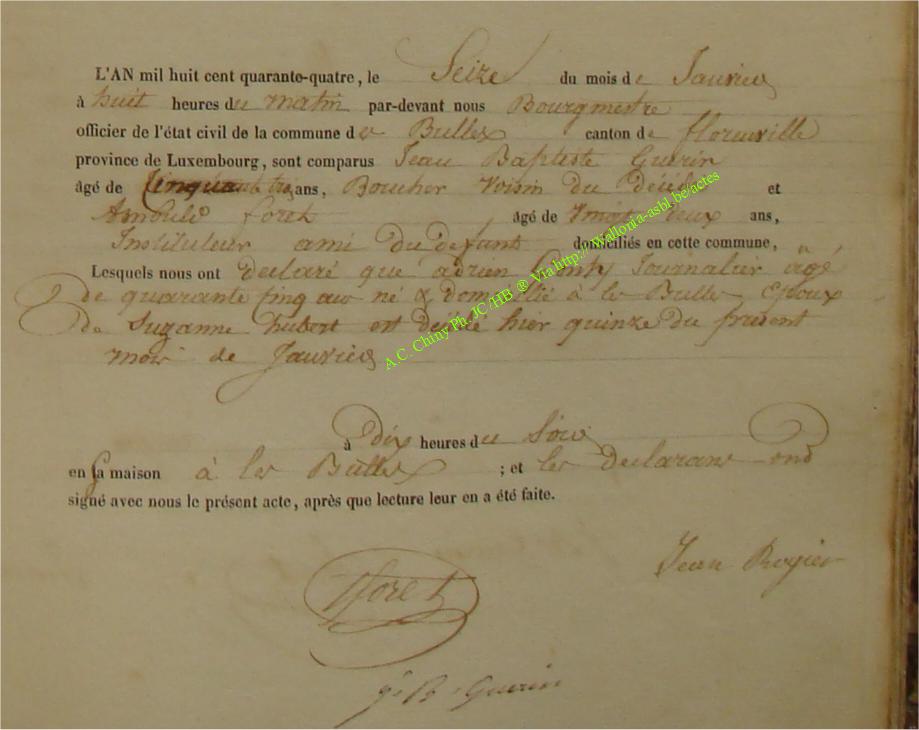 L'AN mil huit cent quarante-quatre, le Seize du mois de Janvier
à huit heures du matin par-devant nous Bourgmestre
officier de l'état civil de la commune des Bulles canton de florenville
province de Luxembourg, sont comparus Jean Baptiste Guerin
âgé de ans, Boucher voisin du décédé et
foret âgé de vingt deux ans,
Instituteur ami du defunt domiciliés en cette commune,
Lesquels nous ont declaré que adrien Journalier âgé
de quarante cinq ans né & domicilié à les Bulles Epoux
de Suzanne hubert est décédé hier quinze du present
mois de Janvier
à dix heures du Soir
en sa maison à les Bulles ; et les declarans ond
signé avec nous le présent acte, après que lecture leur en a été faite.
Jean Rogier
foret
J. B. Guerin
A.C. Chiny Ph. JC /HB ® Via http://Wallonia-asbl.be/actes